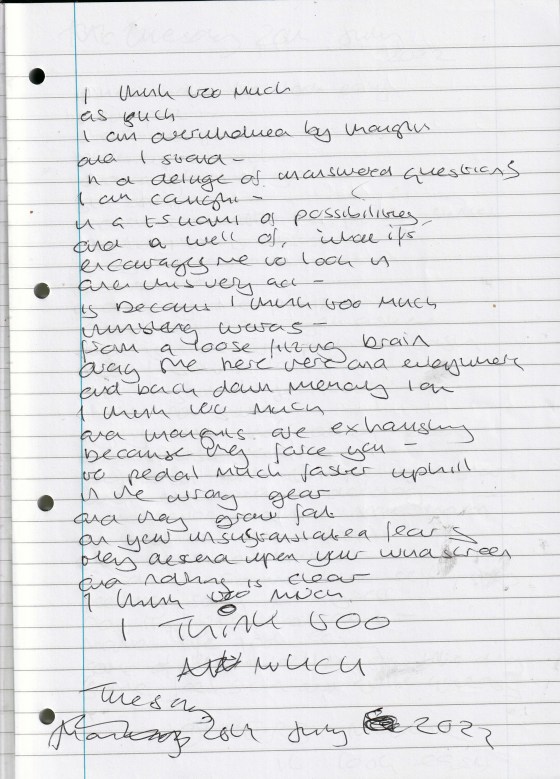 I think too much
as such
I am overwhelmed by thoughts
and I stand -
in a deluge of unanswered questions
I am caught -
in a tsunami of possibilities
and a well of, 'what ifs'
encourages me to look in
and this very act -
is because I think too much
words -
from a loose firing brain
drag me here there and everywhere
and back down memory lane
I think too much
and thoughts are exhausting
because they force you -
to pedal much faster uphill
in the wrong gear
and they grow fat
on your unsubstantiated fears
they descend upon your windscreen
and nothing is clear
I think too much
I THINK TOO
MUCH
Tuesday
July 2022